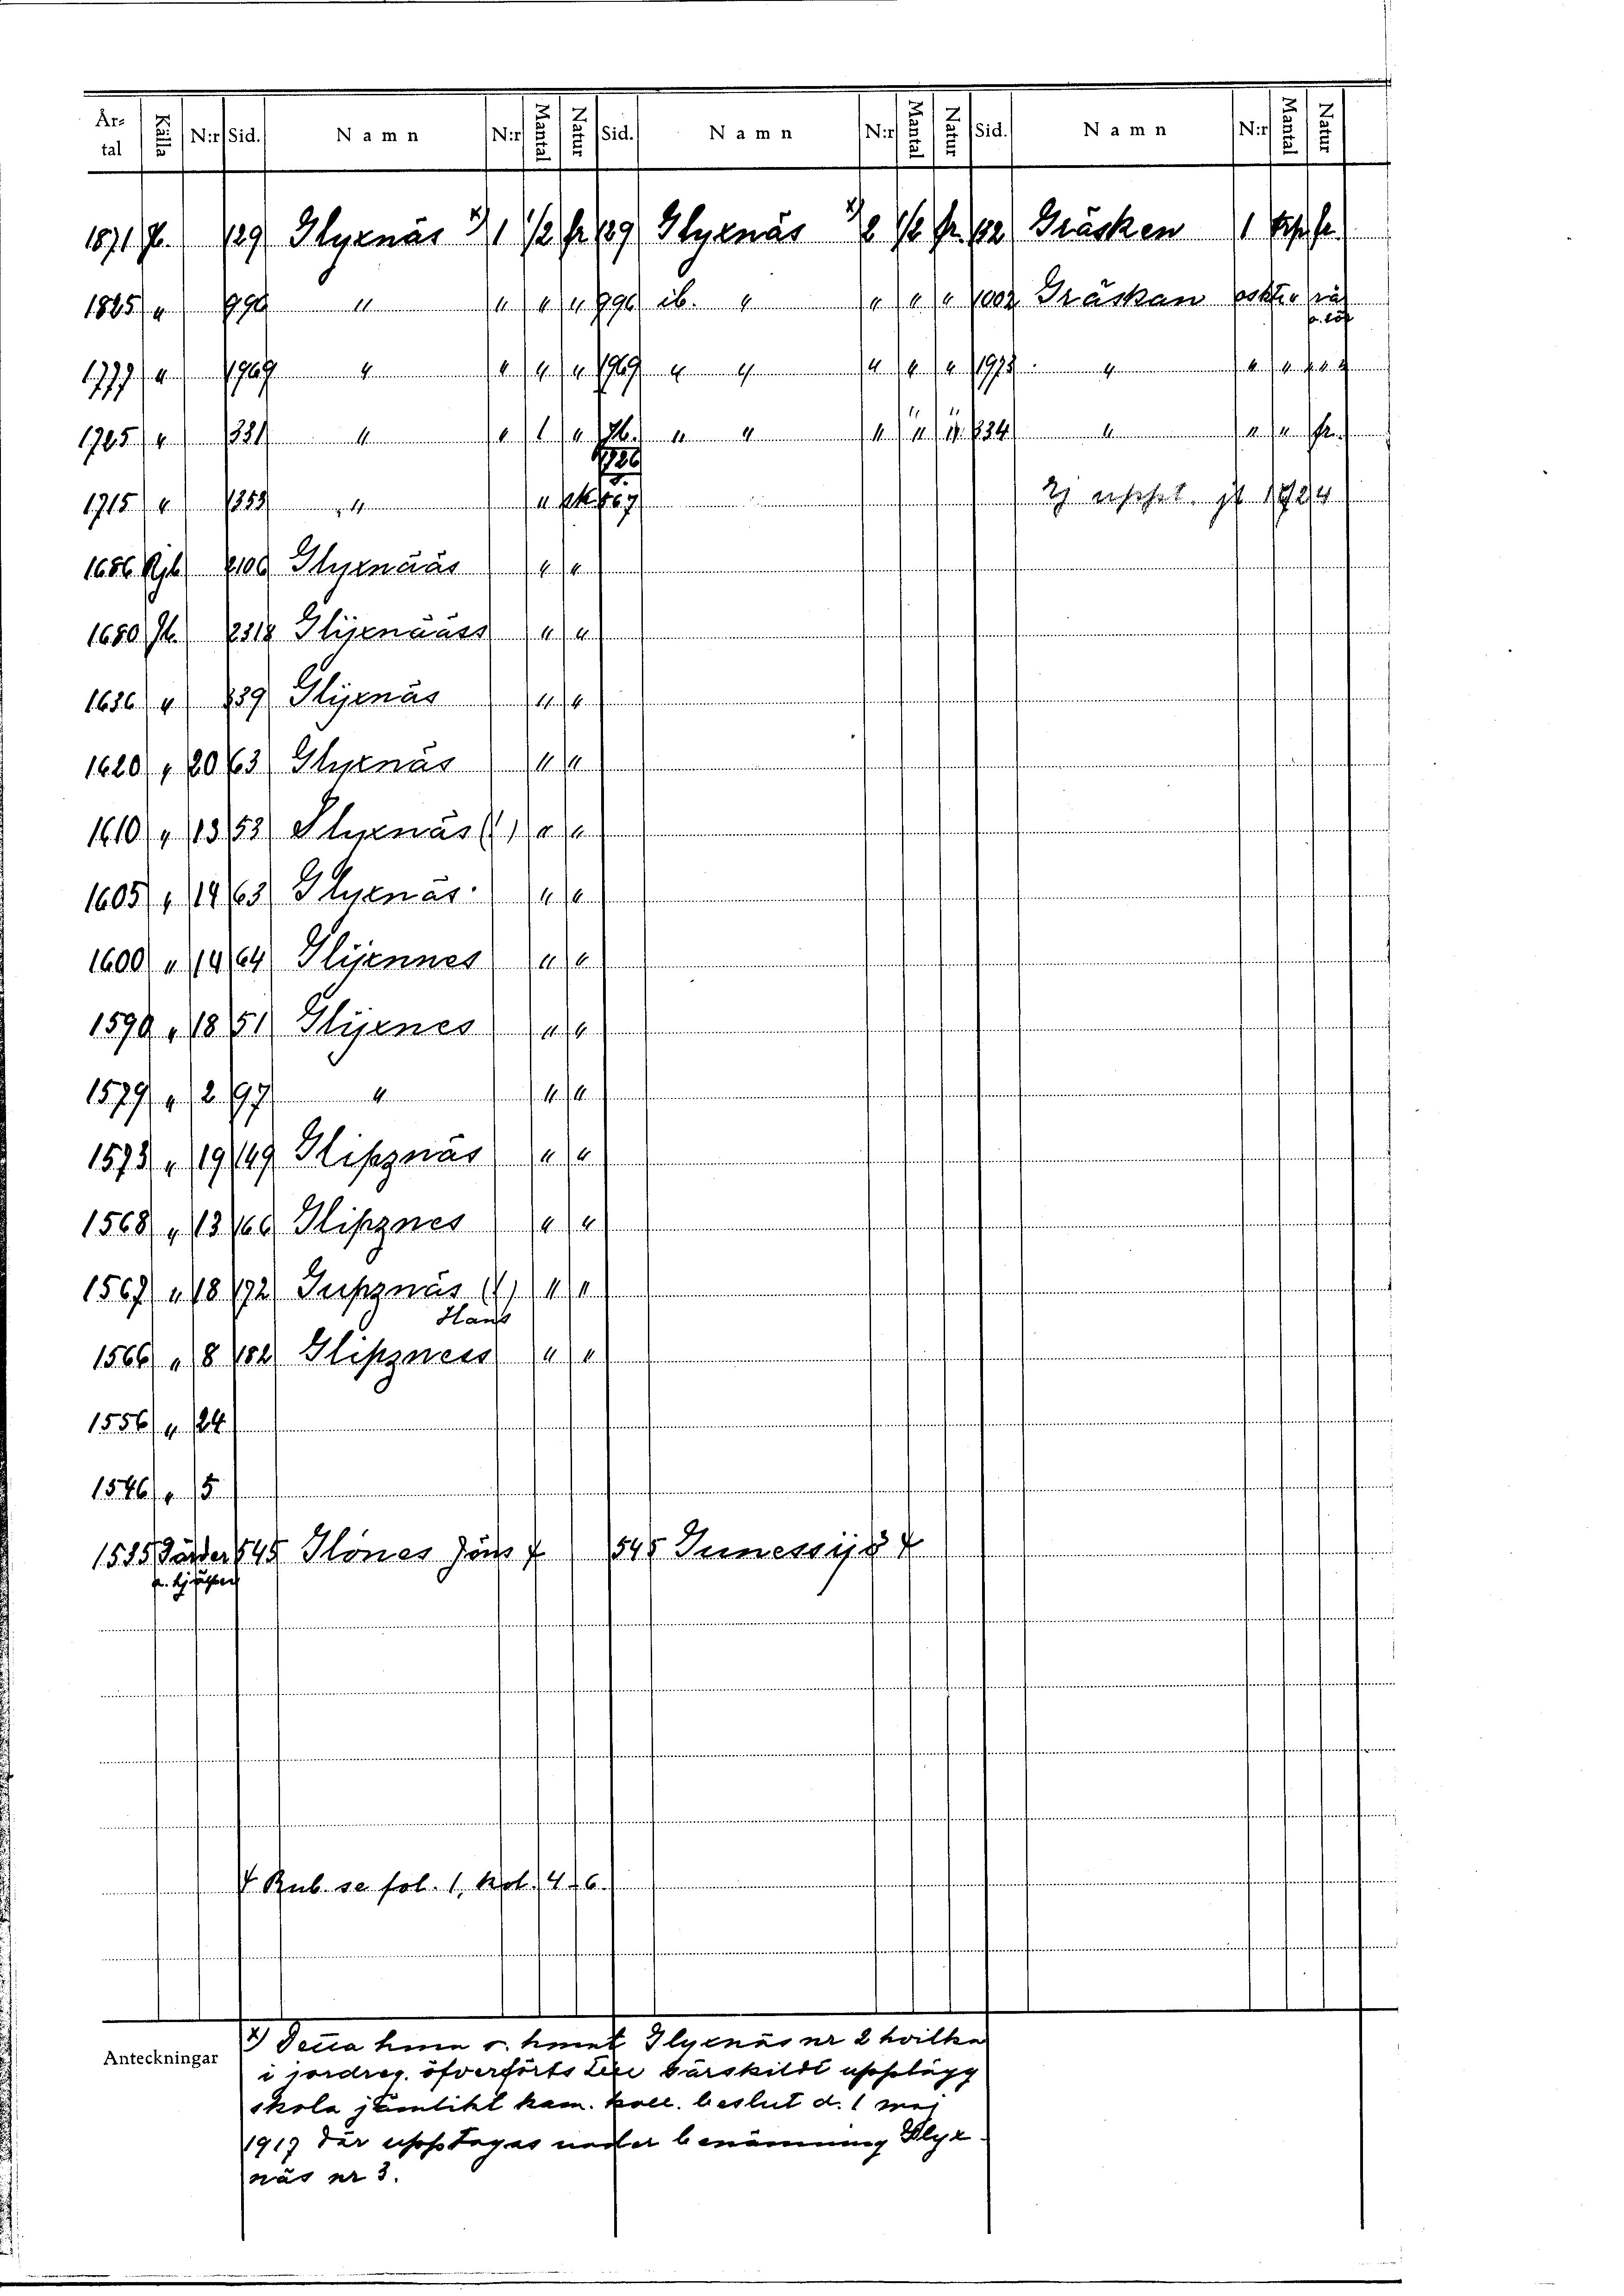 År-tal Källa N:r Sid. Namn N:r Mantal Natur Sid. Namn N:r Mantal Natur Sid. Namn N:r Mantal Natur
1871 Jb. 129 Glyxnäs x) 1 1/2 fr 129 Glyxnäs x) 2 1/2 fr. 132 Gräsken 1 fr
1825 " 990 " " " " 990 ib. " " " " 1002 Gräskan
1777 " 1969 " " " " 1969 " " " " " 1973 " " " " "
1725 " 1331 " " 1 " Jb. " " " " " 1334 " " " fr.
1726
1715 " 1353 " " sk. 567 Ej uppt. jb 1724
1686 Rjb 2106 Glyxnääs " "
1680 Jb. 2318 Glijxnääss " "
1636 " 139 Glijxnäs " "
1620 " 20 63 Glyxnäs " "
1610 " 13 53 Slyxnäs (!) " "
1605 " 14 63 Glyxnäs " "
1600 " 14 64 Glijxnnes " "
1590 " 18 51 Glijxnes " "
1579 " 2 97 " " "
1573 " 19 149 Glipznäs " "
1568 " 13 166 Glipznes " "
1567 " 18 172 Gupznäs (!) " "
Hans
1566 " 8 182 Glipzness " "
1556 " 24
1546 " 5
1535 Gärder 545 Glönes Jöns + 545 Junessijö +
o. hjälper
+ Rub. se fol. 1, kol. 4-6.
Anteckningar
x) Detta hmn o. hmnt Glyxnäs nr 2 hvilka
i jordreg. öfverförts till särskildt upplägg
skola jämlikt kam. koll. beslut d. 1 maj
1917 där upptagas under benämning Glyx-
näs nr 3.